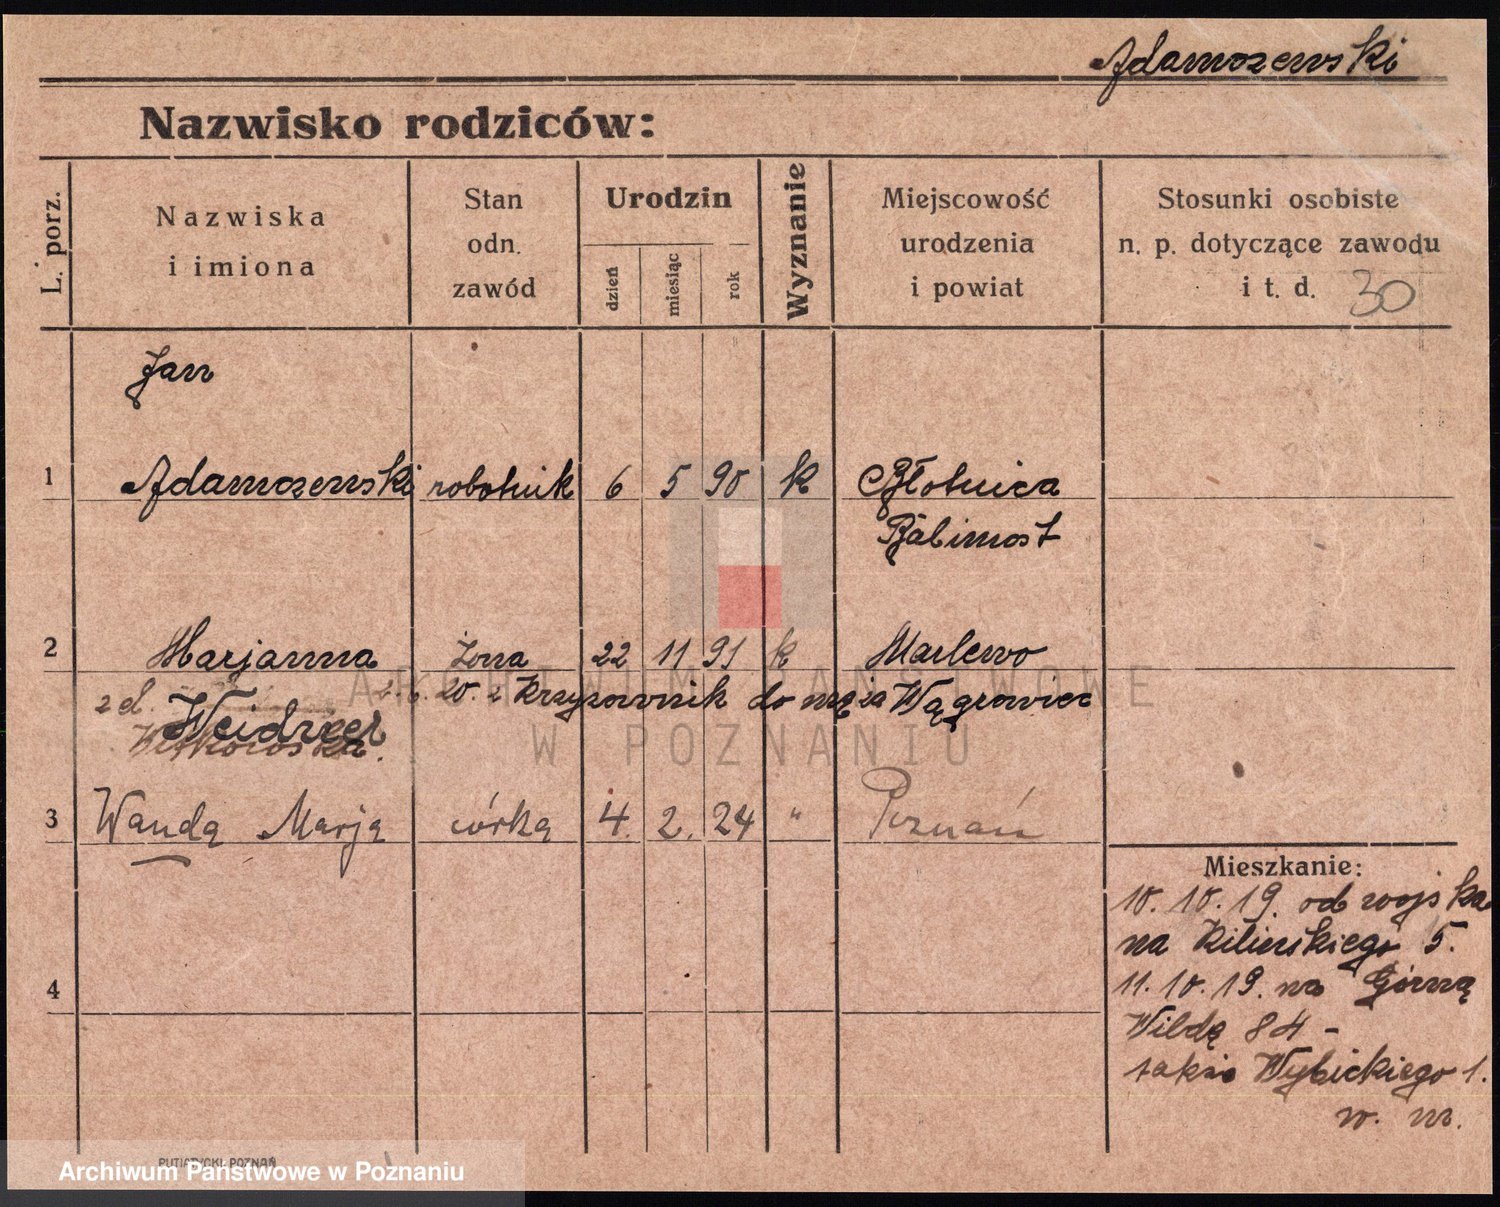 Adamczewski
Nazwisko rodziców:
L. porz.
Nazwiska
i imiona
Stan
odn.
zawód
Urodzin
dzień
miesiąc
rok
Wyznanie
Miejscowość
urodzenia
i powiat
Stosunki osobiste
n. p. dotyczące zawodu
i t. d. 30
Jan
1 Adamczewski robotnik 6 5 90 k Błotnica
Babimost
2 Marjanna żona 22 11 91 k Marlewo
z d. 20. z Krzyżownik do męża Wągrowiec
Weidner
Witkowska.
3 Wanda Marja córka 4. 2. 24 " Poznań
Mieszkanie:
10. 10. 19. od wojska
na Kilińskiego 5.
4
11. 10. 19. na Górną
Wildę 84 -
także Wybickiego 1.
w. m.
PUTIATYCKI, POZNAŃ
ARCHIWUM PAŃSTWOWE
W POZNANIU
Archiwum Państwowe w Poznaniu